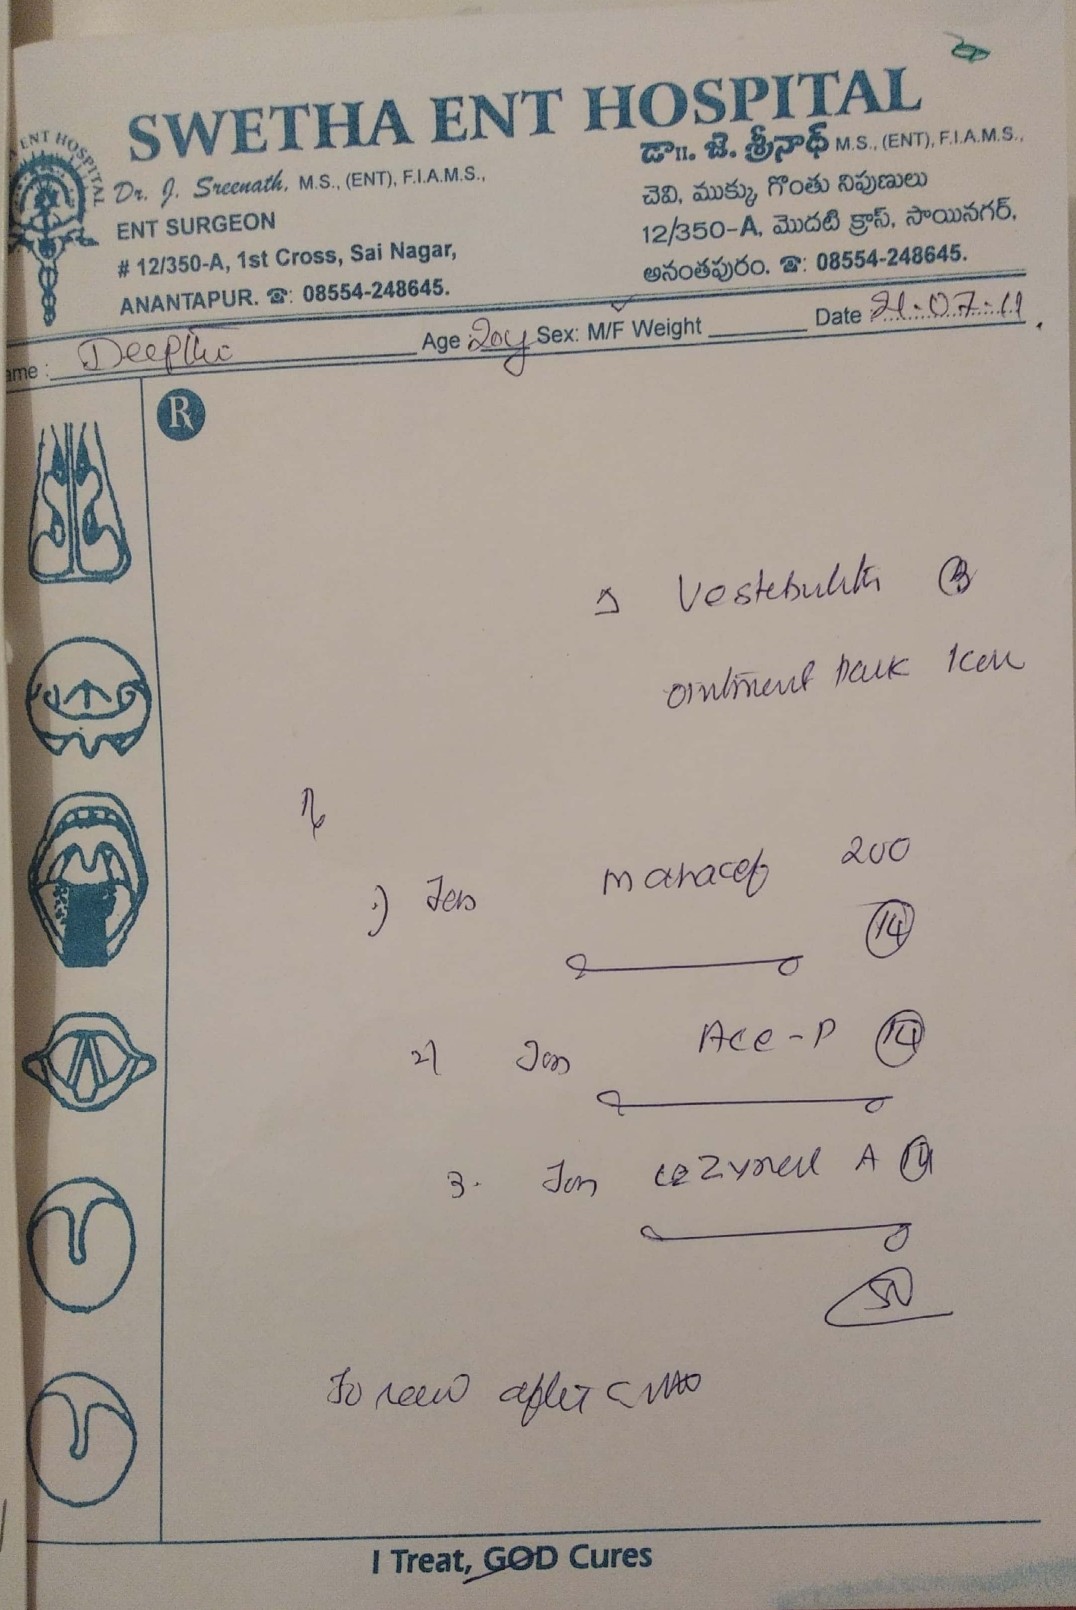 SWETHA ENT HOSPITAL
ENT HOSPITAL
Dr. J. Sreenath, M.S., (ENT), F.I.A.M.S.,
ENT SURGEON
# 12/350-A, 1st Cross, Sai Nagar,
ANANTAPUR. ☎: 08554-248645.
డా॥. జె. శ్రీనాథ్ M.S., (ENT), F.I.A.M.S.,
చెవి, ముక్కు, గొంతు నిపుణులు
12/350-A, మొదటి క్రాస్, సాయినగర్,
అనంతపురం. ☎: 08554-248645.
ame : Deepthi Age 20y Sex: M/F Weight Date 21-07-11
Rx
Vestebulitis
ointment
1) Tab 200
14
2) Tab Ace-P 14
3. Tab A
after
I Treat, GOD Cures